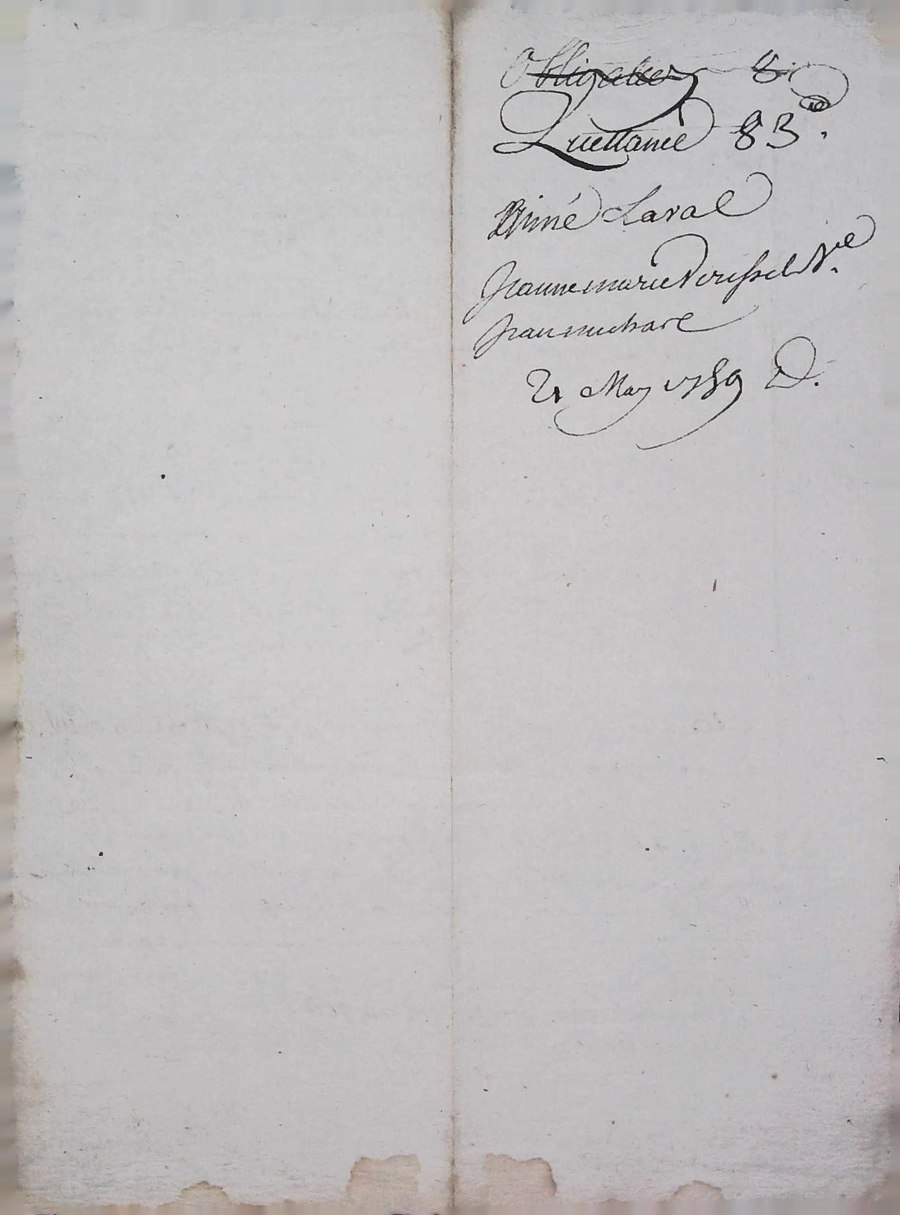 Obligation 8
Quittance 83
Aimé Laval
Jeanne marie Roussel Ve
Jean michael
21 May 1789 D.